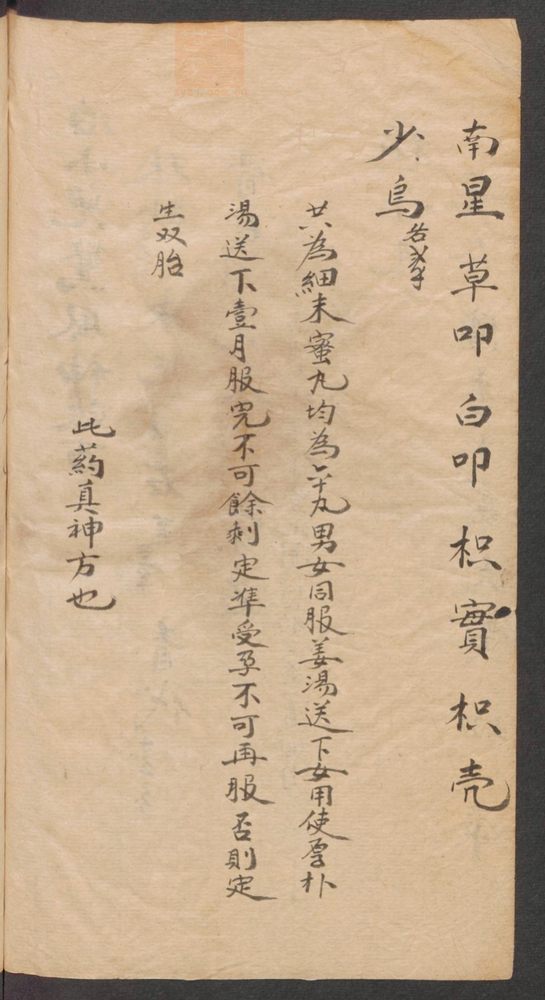 南星 草叩 白叩 枳實 枳壳
少烏 各
共為細末蜜丸均為 丸男女同服姜湯送下女用使厚朴
湯送下壹月服完不可餘剩定准受孕不可再服否則定
生双胎
此葯真神方也